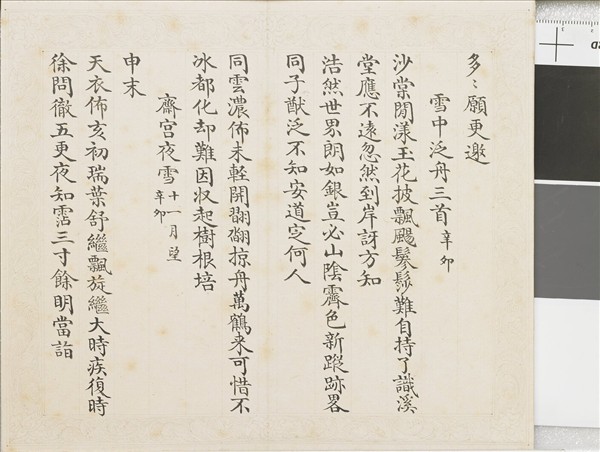 多〻願更邀
雪中泛舟三首辛卯
沙棠閒漾玉花披飄颺鬖髿難自持了識溪
堂應不遠忽然到岸訝方知
浩然世界朗如銀豈必山陰霽色新蹤跡畧
同子猷泛不知安道定何人
同雲濃佈未輕開翩翩掠舟萬鶴来可惜不
冰都化却難因収起樹根培
齋宫夜雪十一月望辛卯
申末
天衣佈亥初瑞葉舒繼飄旋繼大時疾復時
徐問徹五更夜知霑三寸餘明當詣